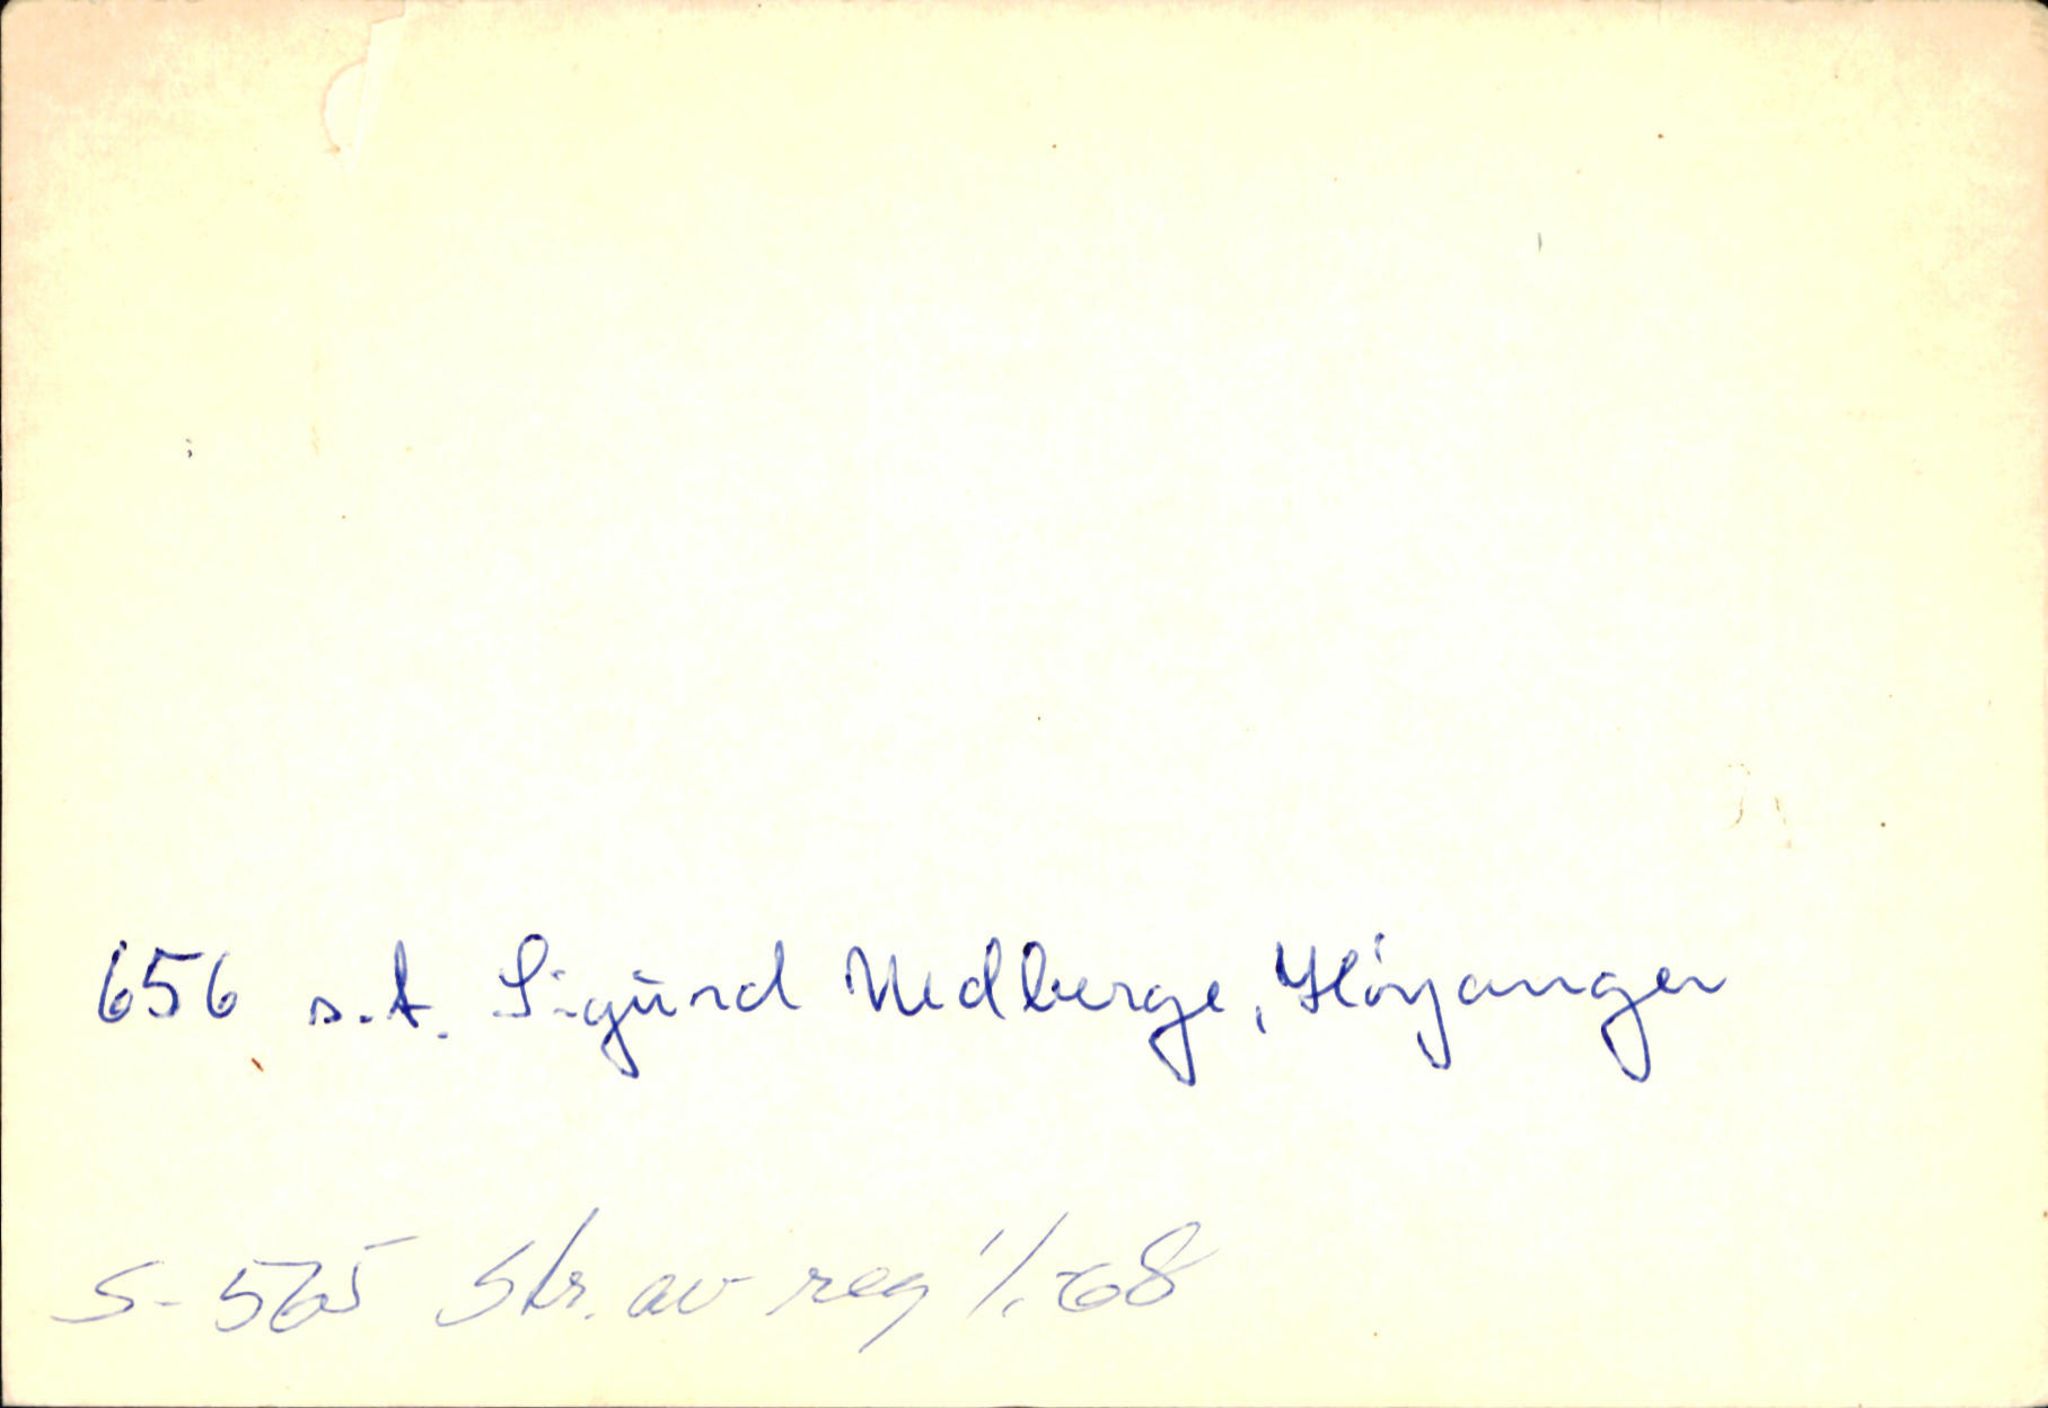 656 s.t. Sigurd Nedberge, Høyanger
S-565 Str. av reg 1/1.68